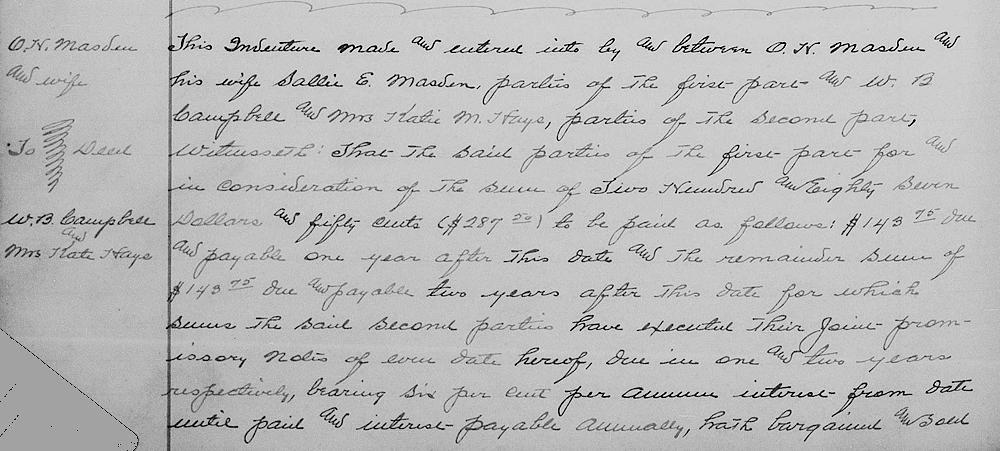 O.N. Masden
and wife
To Deed
W.B. Campbell
and
Mrs Kate Hays
This Indenture made and entered into by and between O.N. Masden and
his wife Sallie E. Masden, parties of the first part and W. B
Campbell and Mrs Katie M. Hays, parties of the second part,
Witnesseth: That the said parties of the first part for and
in consideration of the sum of Two Hundred and Eighty Seven
Dollars and fifty cents ($287 50) to be paid as follows: $143 75 due
and payable one year after this date and the remainder sum of
$143 75 due and payable two years after this date for which
sums the said second parties have executed their joint prom-
issory notes of even date hereof, due in one and two years
respectively, bearing six per cent per annum interest from date
until paid and interest payable annually, hath bargained and sold